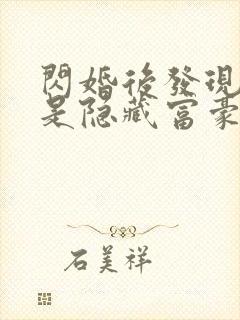 閃婚後發現
是隐藏富豪
石美祥